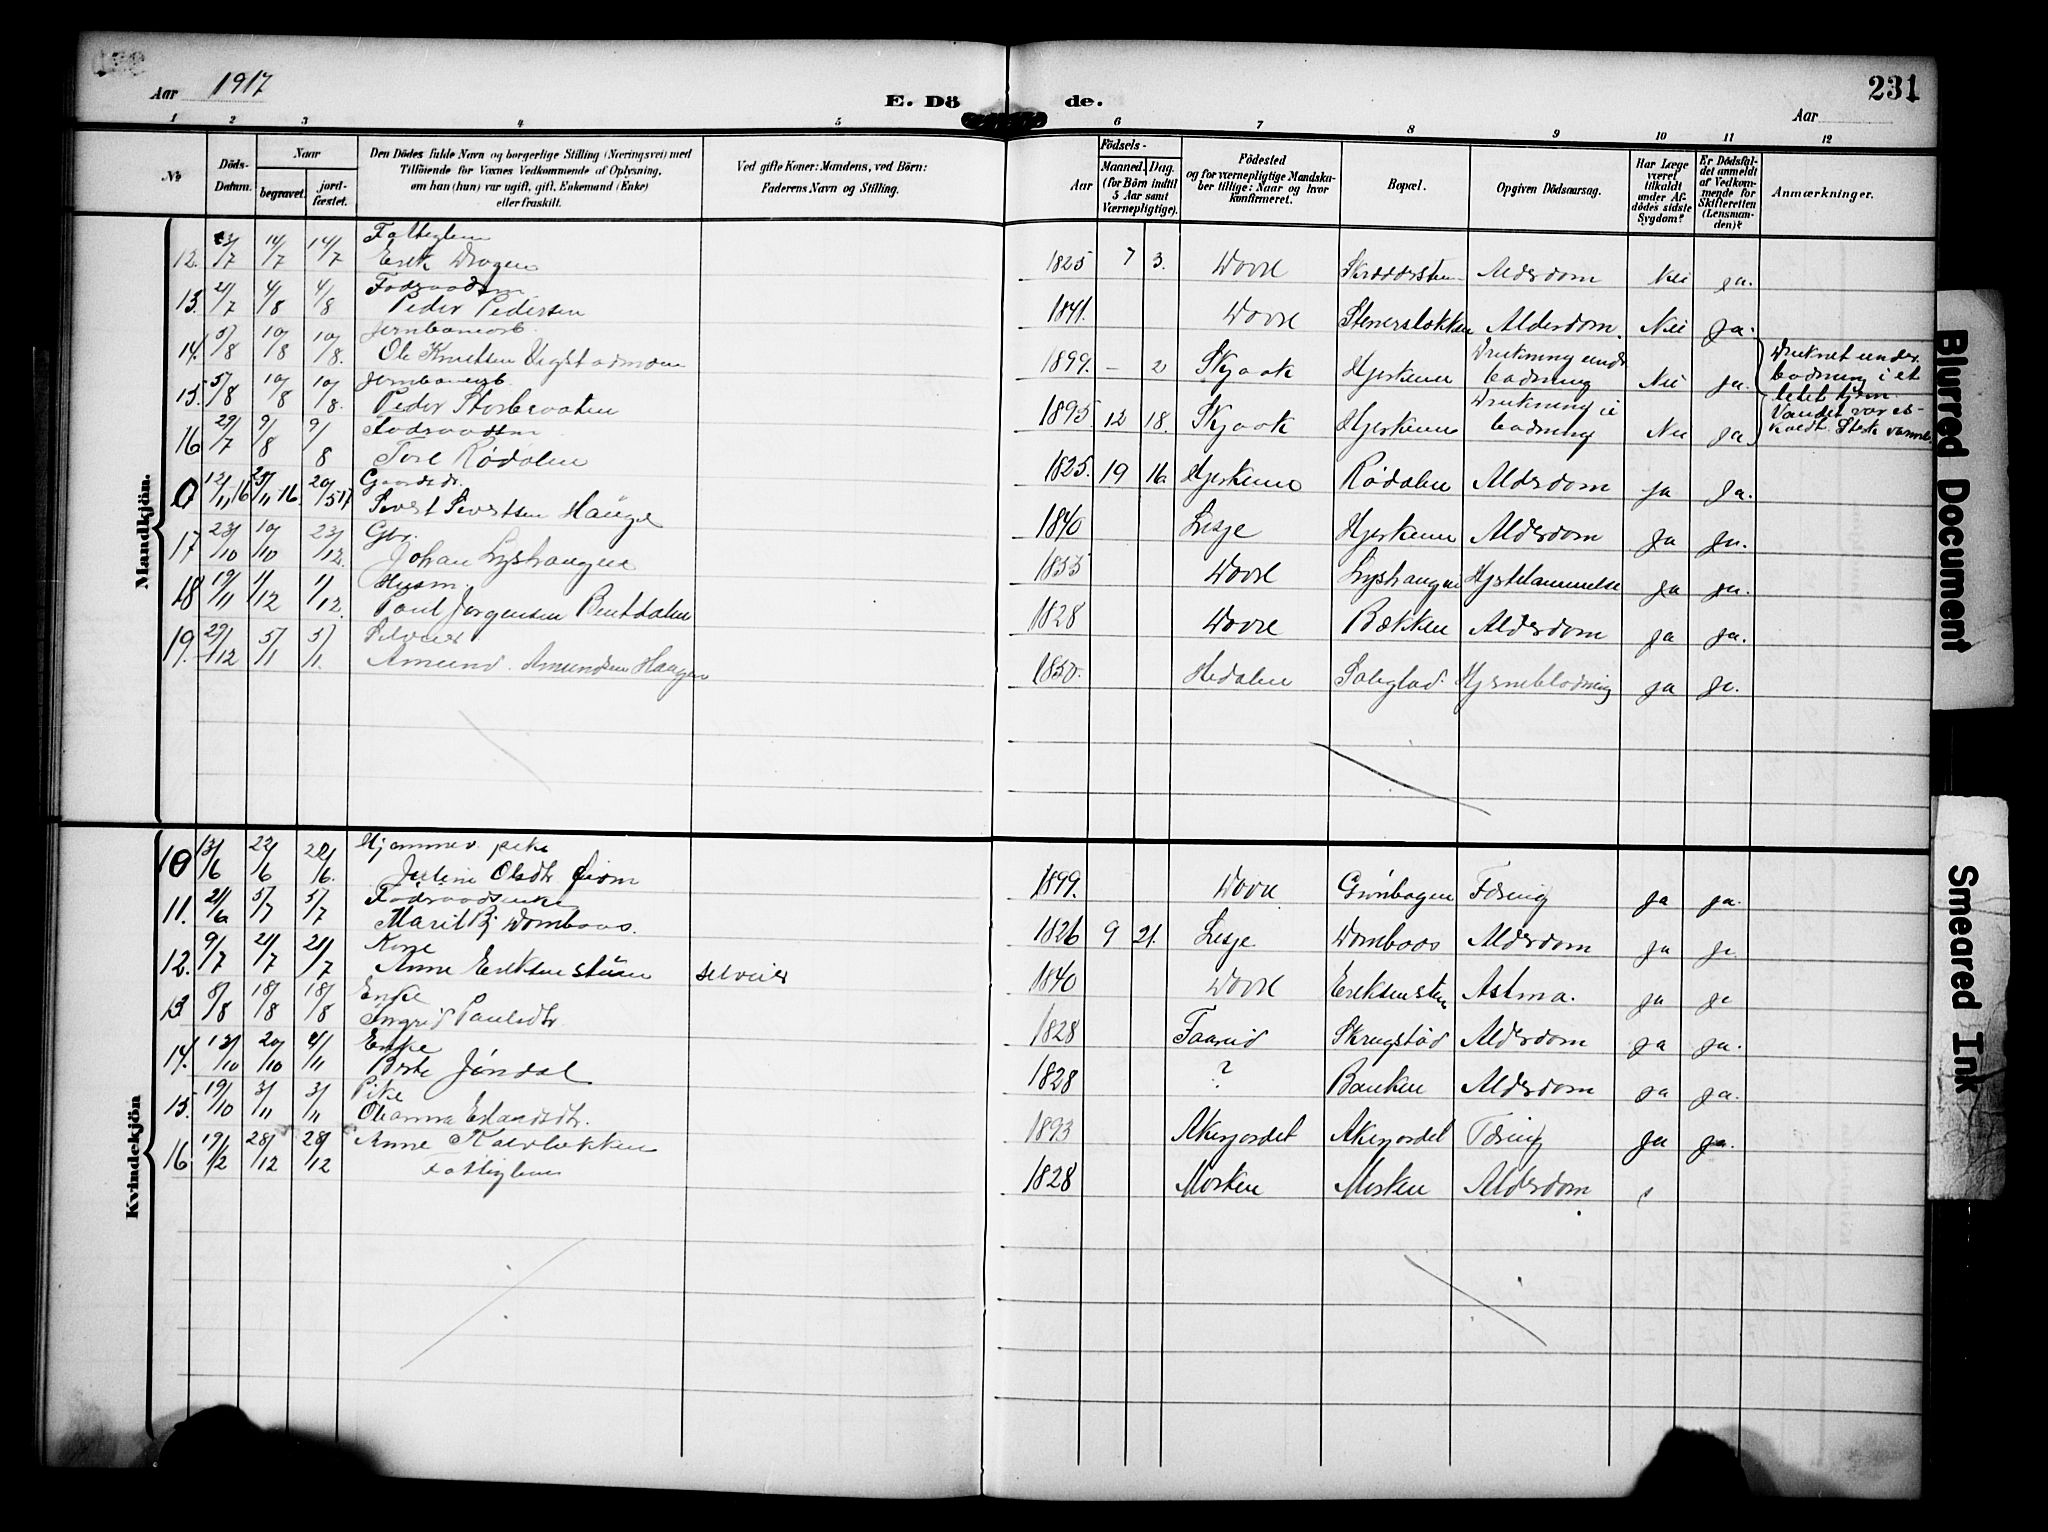 Aar 1917
E. Dö de.
231
Aar
1 2 3 4 5 6 7 8 9 10 11 12
No
Döds-Datum.
Naar
begravet.
jord-fæstet.
Den Dödes fulde Navn og borgerlige Stilling (Næringsvei) med
Tilföiende for Voxnes Vedkommende af Oplysning,
om han (hun) var ugift, gift, Enkemand (Enke)
eller fraskilt.
Ved gifte Koner: Mandens, ved Börn:
Faderens Navn og Stilling.
Födsels-
Aar
Maaned. Dag.
(for Börn indtil
5 Aar samt
Værnepligtige).
Födested
og for værnepligtige Mandska-
ber tillige: Naar og hvor
konfirmeret.
Bopæl.
Opgiven Dödsaarsag.
Har Læge
været
tilkaldt
under Af-
dödes sidste
Sygdom?
Er Dödsfal-
det anmeldt
af Vedkom-
mende for
Skifteretten
(Lensman-
den)?
Anmærkninger.
Mandkjön.
12. 14/7 14/7 Fattiglem
Erik Drogen 1825 7 3. Dovre Alderdom Nei ja.
13. 21/7 4/8 4/8 Føderaadsm
Peder Pedersen 1841. Dovre Alderdom. Nei ja.
14. 5/8 10/8 10/8. Jernbanearb.
Ole Knutsen 1899. - 2 Skjaak Hjerkinn Drukning under badning Nei ja.
15. 5/8 10/8 10/8. Jernbanearb.
Peder Storbraaten 1895 12 18. Skjaak Hjerkinn Drukning i badning Nei ja
Druknet under
badning i et
litet tjern
Vandet var is-
koldt.
16 29/7 9/8 9/8 Føderaadsm
Tore Rødalen 1825. 19 16 Hjerkinn Rødalen Alderdom ja ja.
0 12/11-16 25/11 16. 20/5 17 Gaardbr.
Sivert Sivertsen Hauge 1840 Lesje Hjerkinn Alderdom ja ja.
17 23/10 10/10 23/12. Gbr.
Johan Lyshaugen 1855 Dovre Lyshaugen Hjertelammelse ja ja.
18 19/11 1/12 1/12. Husm.
Paul Jørgensen Bentdalen 1828 Dovre Bækken Alderdom ja ja.
19. 29/12 5/1 5/1. Selveier
Amund Amundsen Haugen 1850. Hedalen Hjerneblødning ja ja.
Kvindekjön
10 13/6 22/6 22/6. Hjemmev. pike
Juline Olsdtr 1899. Dovre Grønhaugen Tæring ja ja.
11. 21/6 5/7 5/7 Føderaadsenke
Marit Bj Dombaas. 1826 9 21. Lesje Dombaas Alderdom ja ja
12. 9/7 21/7 21/7 Kone
Anne Eriksenstuen selveier 1840 Dovre Eriksenstuen Astma. ja ja
13 8/8 18/8 18/8 Enke
Ingrid Paulsdtr. 1828 Faarud Skrugstad Alderdom ja ja.
14. 13/10 20/10 4/11 Enke
Berte Jøndal 1828 ? Banken Alderdom ja ja.
15. 19/10 3/11 3/11 Pike
Oleanna Erlandsdtr. 1893 Akerjordet Akerjordet Tæring ja ja.
16 19/12 28/12 28/12 Anne Kalvløkken
Fattiglem 1828 Morken Morken Alderdom
Blurred Document
Smeared Ink